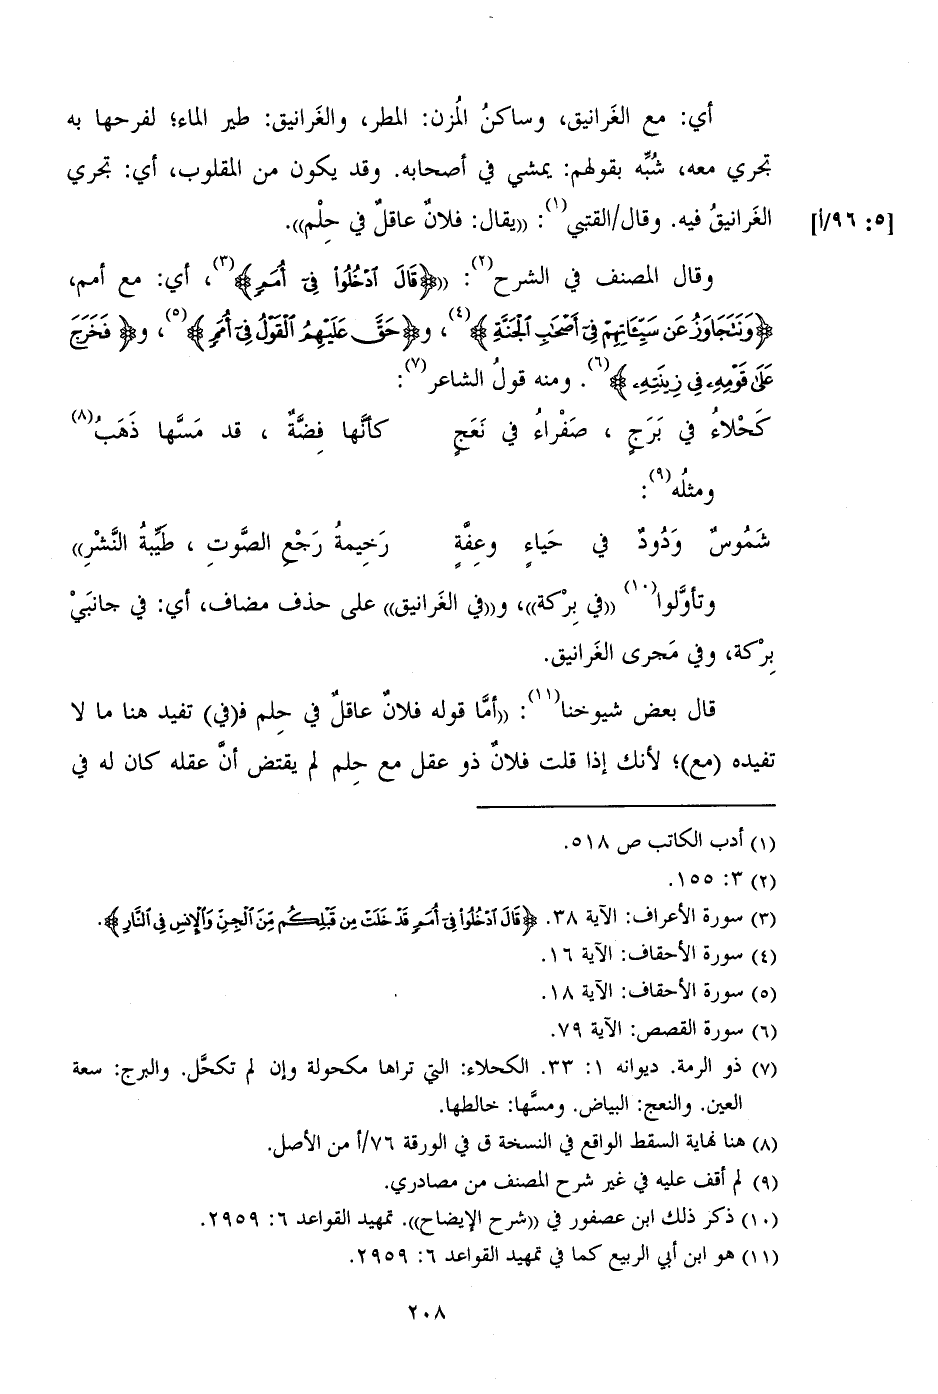 أي: مع الغَرانيق، وساكنُ المُزن: المطر، والغَرانيق: طير الماء؛ لفرحها به
تجري معه، شُبِّه بقولهم: يمشي في أصحابه. وقد يكون من المقلوب، أي: تجري
[٥: ٩٦/أ] الغَرانيقُ فيه. وقال/القتبي(١): «يقال: فلانٌ عاقلٌ في حِلْم».
وقال المصنف في الشرح(٢): «﴿قَالَ ٱدۡخُلُواْ فِيٓ أُمَمٖ﴾(٣)، أي: مع أمم،
﴿وَنَتَجَاوَزُ عَن سَيِّـَٔاتِهِمۡ فِيٓ أَصۡحَٰبِ ٱلۡجَنَّةِ﴾(٤)، و﴿حَقَّ عَلَيۡهِمُ ٱلۡقَوۡلُ فِيٓ أُمَمٖ﴾(٥)، و﴿فَخَرَجَ
عَلَىٰ قَوۡمِهِۦ فِي زِينَتِهِۦ﴾(٦). ومنه قولُ الشاعر(٧):
كَحْلاءُ في بَرَجٍ ، صَفْراءُ في نَعَجٍ كأنَّها فِضَّةٌ ، قد مَسَّها ذَهَبُ(٨)
ومثلُه(٩):
شَمُوسٌ وَدُودٌ في حَياءٍ وعِفَّةٍ رَخِيمةُ رَجْعِ الصَّوتِ ، طَيِّبةُ النَّشْرِ»
وتأوَّلوا(١٠) «في بِرْكة»، و«في الغَرانيق» على حذف مضاف، أي: في جانبَيْ
بِرْكة، وفي مَجرى الغَرانيق.
قال بعض شيوخنا(١١): «أمَّا قوله فلانٌ عاقلٌ في حِلم فـ(في) تفيد هنا ما لا
تفيده (مع)؛ لأنك إذا قلت فلانٌ ذو عقل مع حِلم لم يقتض أنَّ عقله كان له في
(١) أدب الكاتب ص ٥١٨.
(٢) ٣: ١٥٥.
(٣) سورة الأعراف: الآية ٣٨. ﴿قَالَ ٱدۡخُلُواْ فِيٓ أُمَمٖ قَدۡ خَلَتۡ مِن قَبۡلِكُم مِّنَ ٱلۡجِنِّ وَٱلۡإِنسِ فِي ٱلنَّارِ﴾.
(٤) سورة الأحقاف: الآية ١٦.
(٥) سورة الأحقاف: الآية ١٨.
(٦) سورة القصص: الآية ٧٩.
(٧) ذو الرمة. ديوانه ١: ٣٣. الكحلاء: التي تراها مكحولة وإن لم تكحَّل. والبرج: سعة
العين. والنعج: البياض. ومسَّها: خالطها.
(٨) هنا نهاية السقط الواقع في النسخة ق في الورقة ٧٦/أ من الأصل.
(٩) لم أقف عليه في غير شرح المصنف من مصادري.
(١٠) ذكر ذلك ابن عصفور في «شرح الإيضاح». تمهيد القواعد ٦: ٢٩٥٩.
(١١) هو ابن أبي الربيع كما في تمهيد القواعد ٦: ٢٩٥٩.
٢٠٨